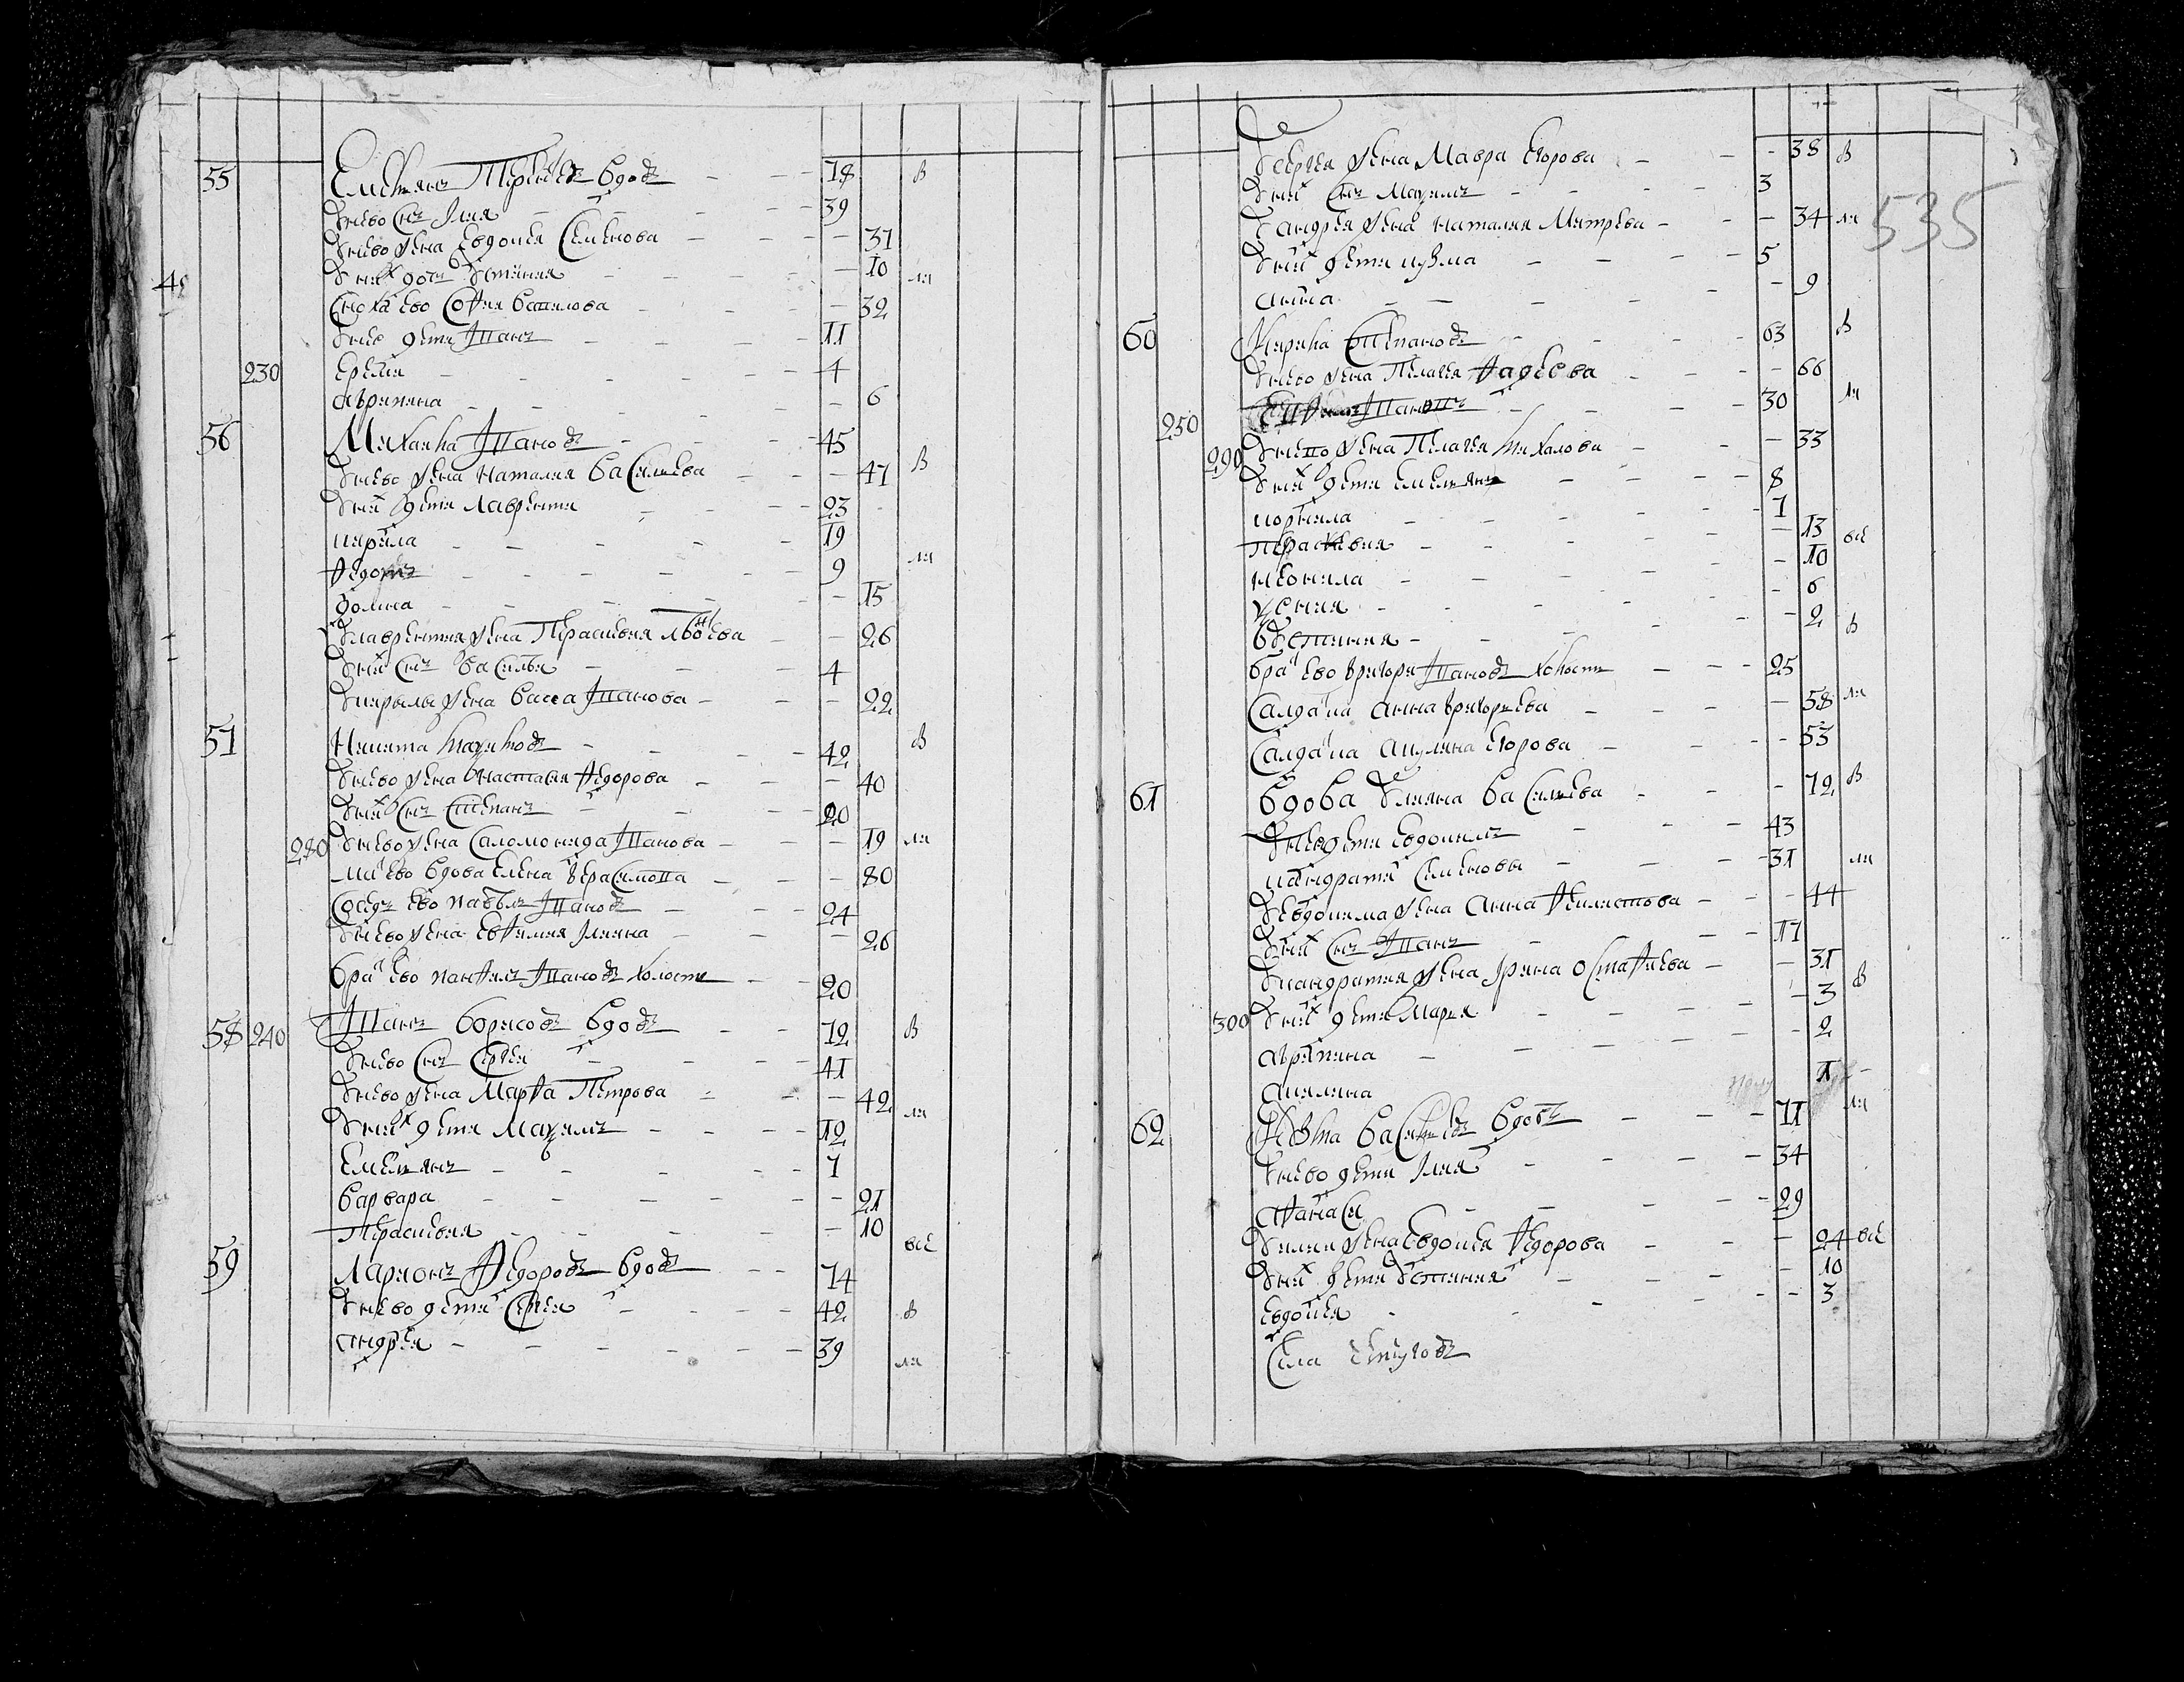 55 Емелянъ Терентьевъ вдовъ 78 в
У нево снъ Илия 39
У нево жена Евдокия Семенова 37
У них дочь Устиния 10 ли
Сноха ево София Вавилова 32
У нее дети Иванъ 11
230 Еремей 4
Агрипина 6
56 Михаила Ивановъ 45
У нево жена Наталия Василиева 47 в
У них дети Лаврентий 23
Кирила 19
Федотъ 9 ли
Домна 15
У Лаврентия жена Парасковия 26
У них снъ Василий 4
У Кирылы жена Васса Иванова 22
57 Никита 42 в
У нево жена Настасия Федорова 40
У них снъ Степанъ 20
280 У нево жена Саломонида Иванова 19 ли
Мать ево вдова Елена Герасимова 80
Соседъ ево Павелъ Ивановъ 24
У нево жена Евфимия Илиина 26
Братъ ево Панфилъ Ивановъ холостъ 20
58 240 Иванъ Борисовъ вдовъ 72 в
У нево снъ Сергей 41
У нево жена Марфа Петрова 42 ли
У них дети Макимъ 12
Емельянъ 7
Варвара 21
Парасковия 10
59 Ларионъ Федоровъ вдовъ 74 все
У нево дети Сергей 42 в
Андрей 39 ли
535
У Сергея жена Мавра Егорова 38 в
У них снъ Макимъ 3
У Андрея жена Наталия Митрева 34 ли
У них дети Кузма 5
Анна 9
60 Кирила Степановъ 63 в
У нево жена Пелагея Фадеева 66
250 Ивановъ 30 ли
290 У нево жена Пелагея Михалова 33
У них дети Емельянъ 8
Корнила 7
Парасковия 13 все
Неонила 10
Ксения 6
Устиния 2 в
Братъ ево Григорей Ивановъ холостъ 25
Салдатка Анна Григориева 58 ли
Салдатка Акулина Егорова 53
61 Вдова Улияна Василиева 72 в
У нее дети Евдокимъ 43
Кандратей Семеновы 31 ли
У Евдокима жена Анна Феклистова 44
У них снъ Иванъ 17
У Кандратия жена Ирина Остафиева 31
300 У них дети Мария 3 в
Агрипина 2
Акилина 1
62 Василиевъ вдовъ 71 ли
У нево дети Илия 34
Афанасей 29
У Илии жена Евдокия Федорова 24 все
У них дети Устиния 10
Евдокия 3